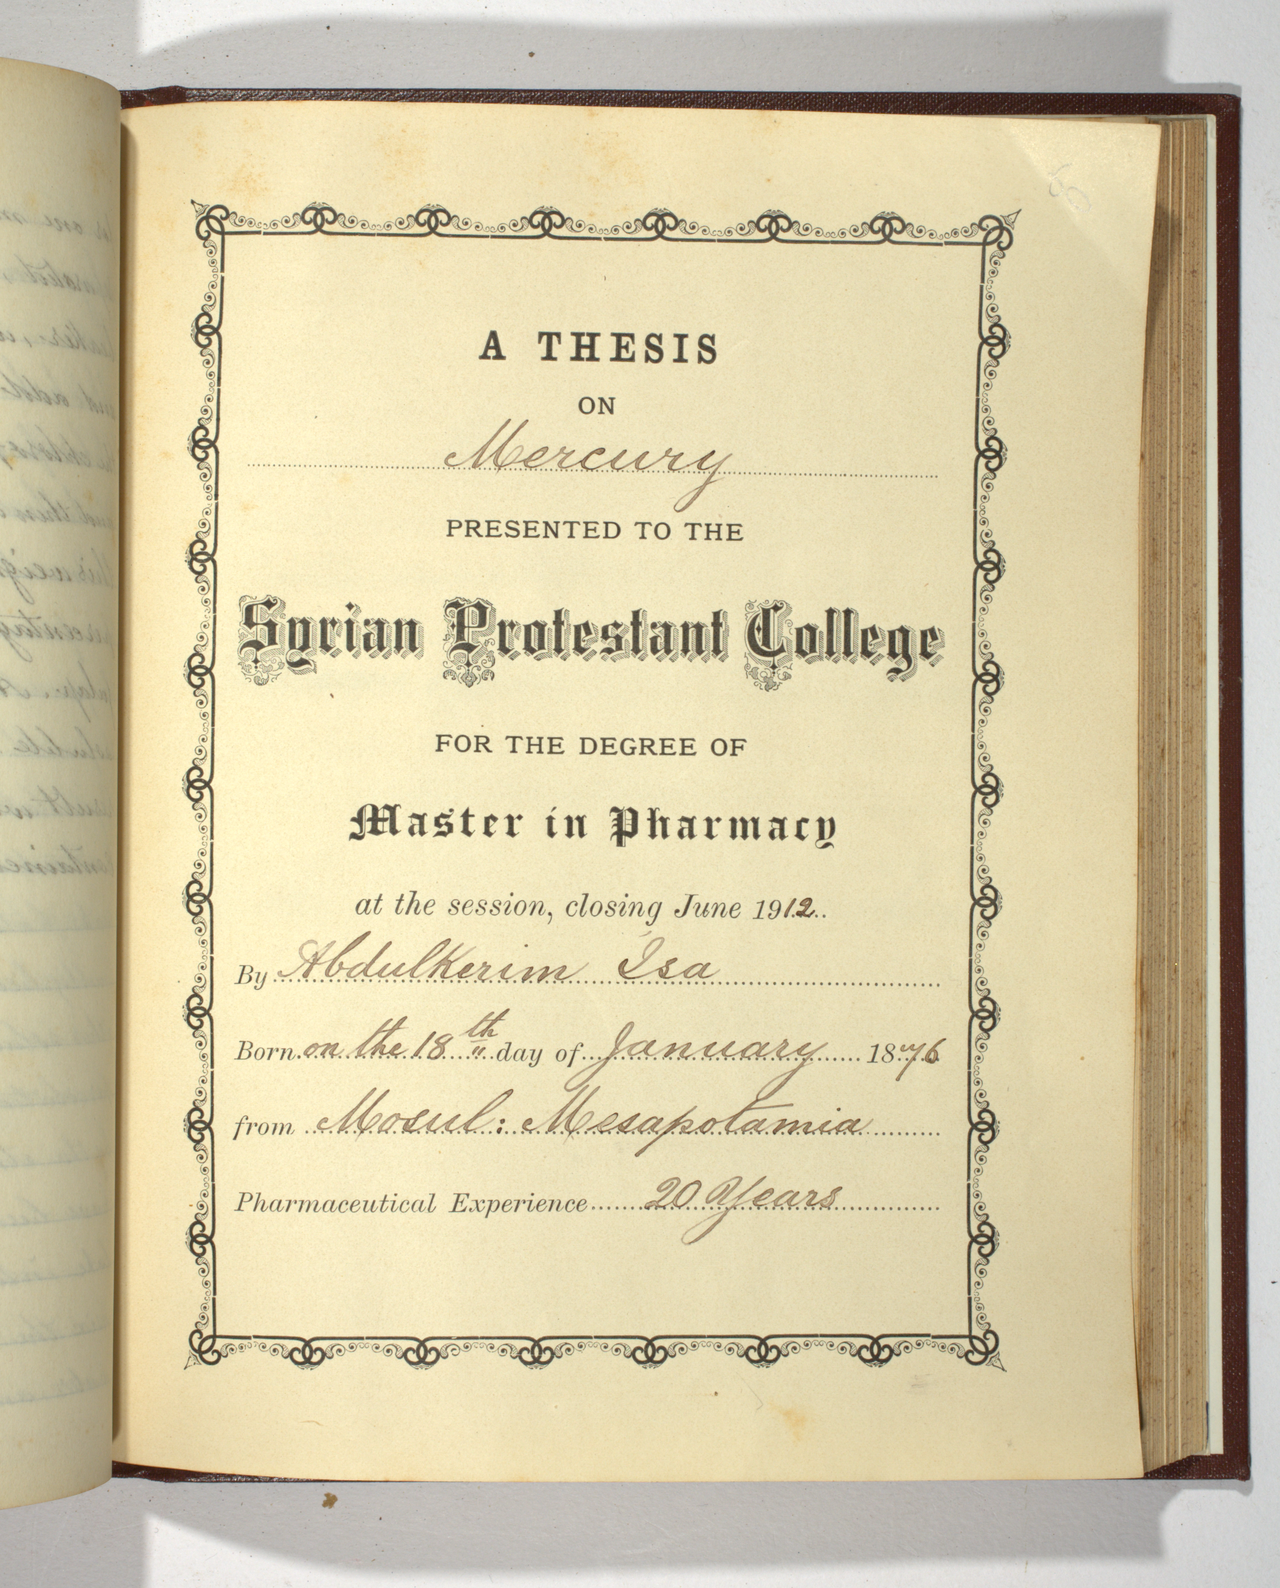 A THESIS
ON
Mercury
PRESENTED TO THE
Syrian Protestant College
FOR THE DEGREE OF
Master in Pharmacy
at the session, closing June 1912.
By Abdulkerim Isa
Born on the 18th day of January 1876
from Mosul: Mesapotamia
Pharmaceutical Experience 20 Years